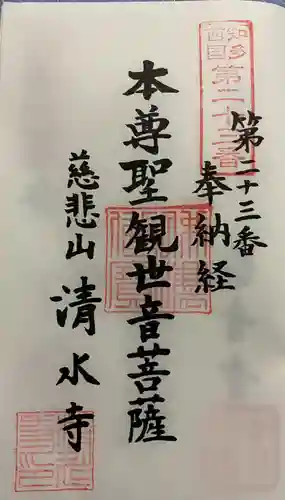 知多
西国
第二十三番
第二十三番
奉納経
本尊聖観世音菩薩
慈悲山
清水寺